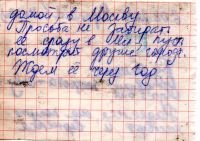 домой, в Москву.
Просьба не забирать
её сразу в Мск, пусть
посмотрит другие города.
Ждем её через год